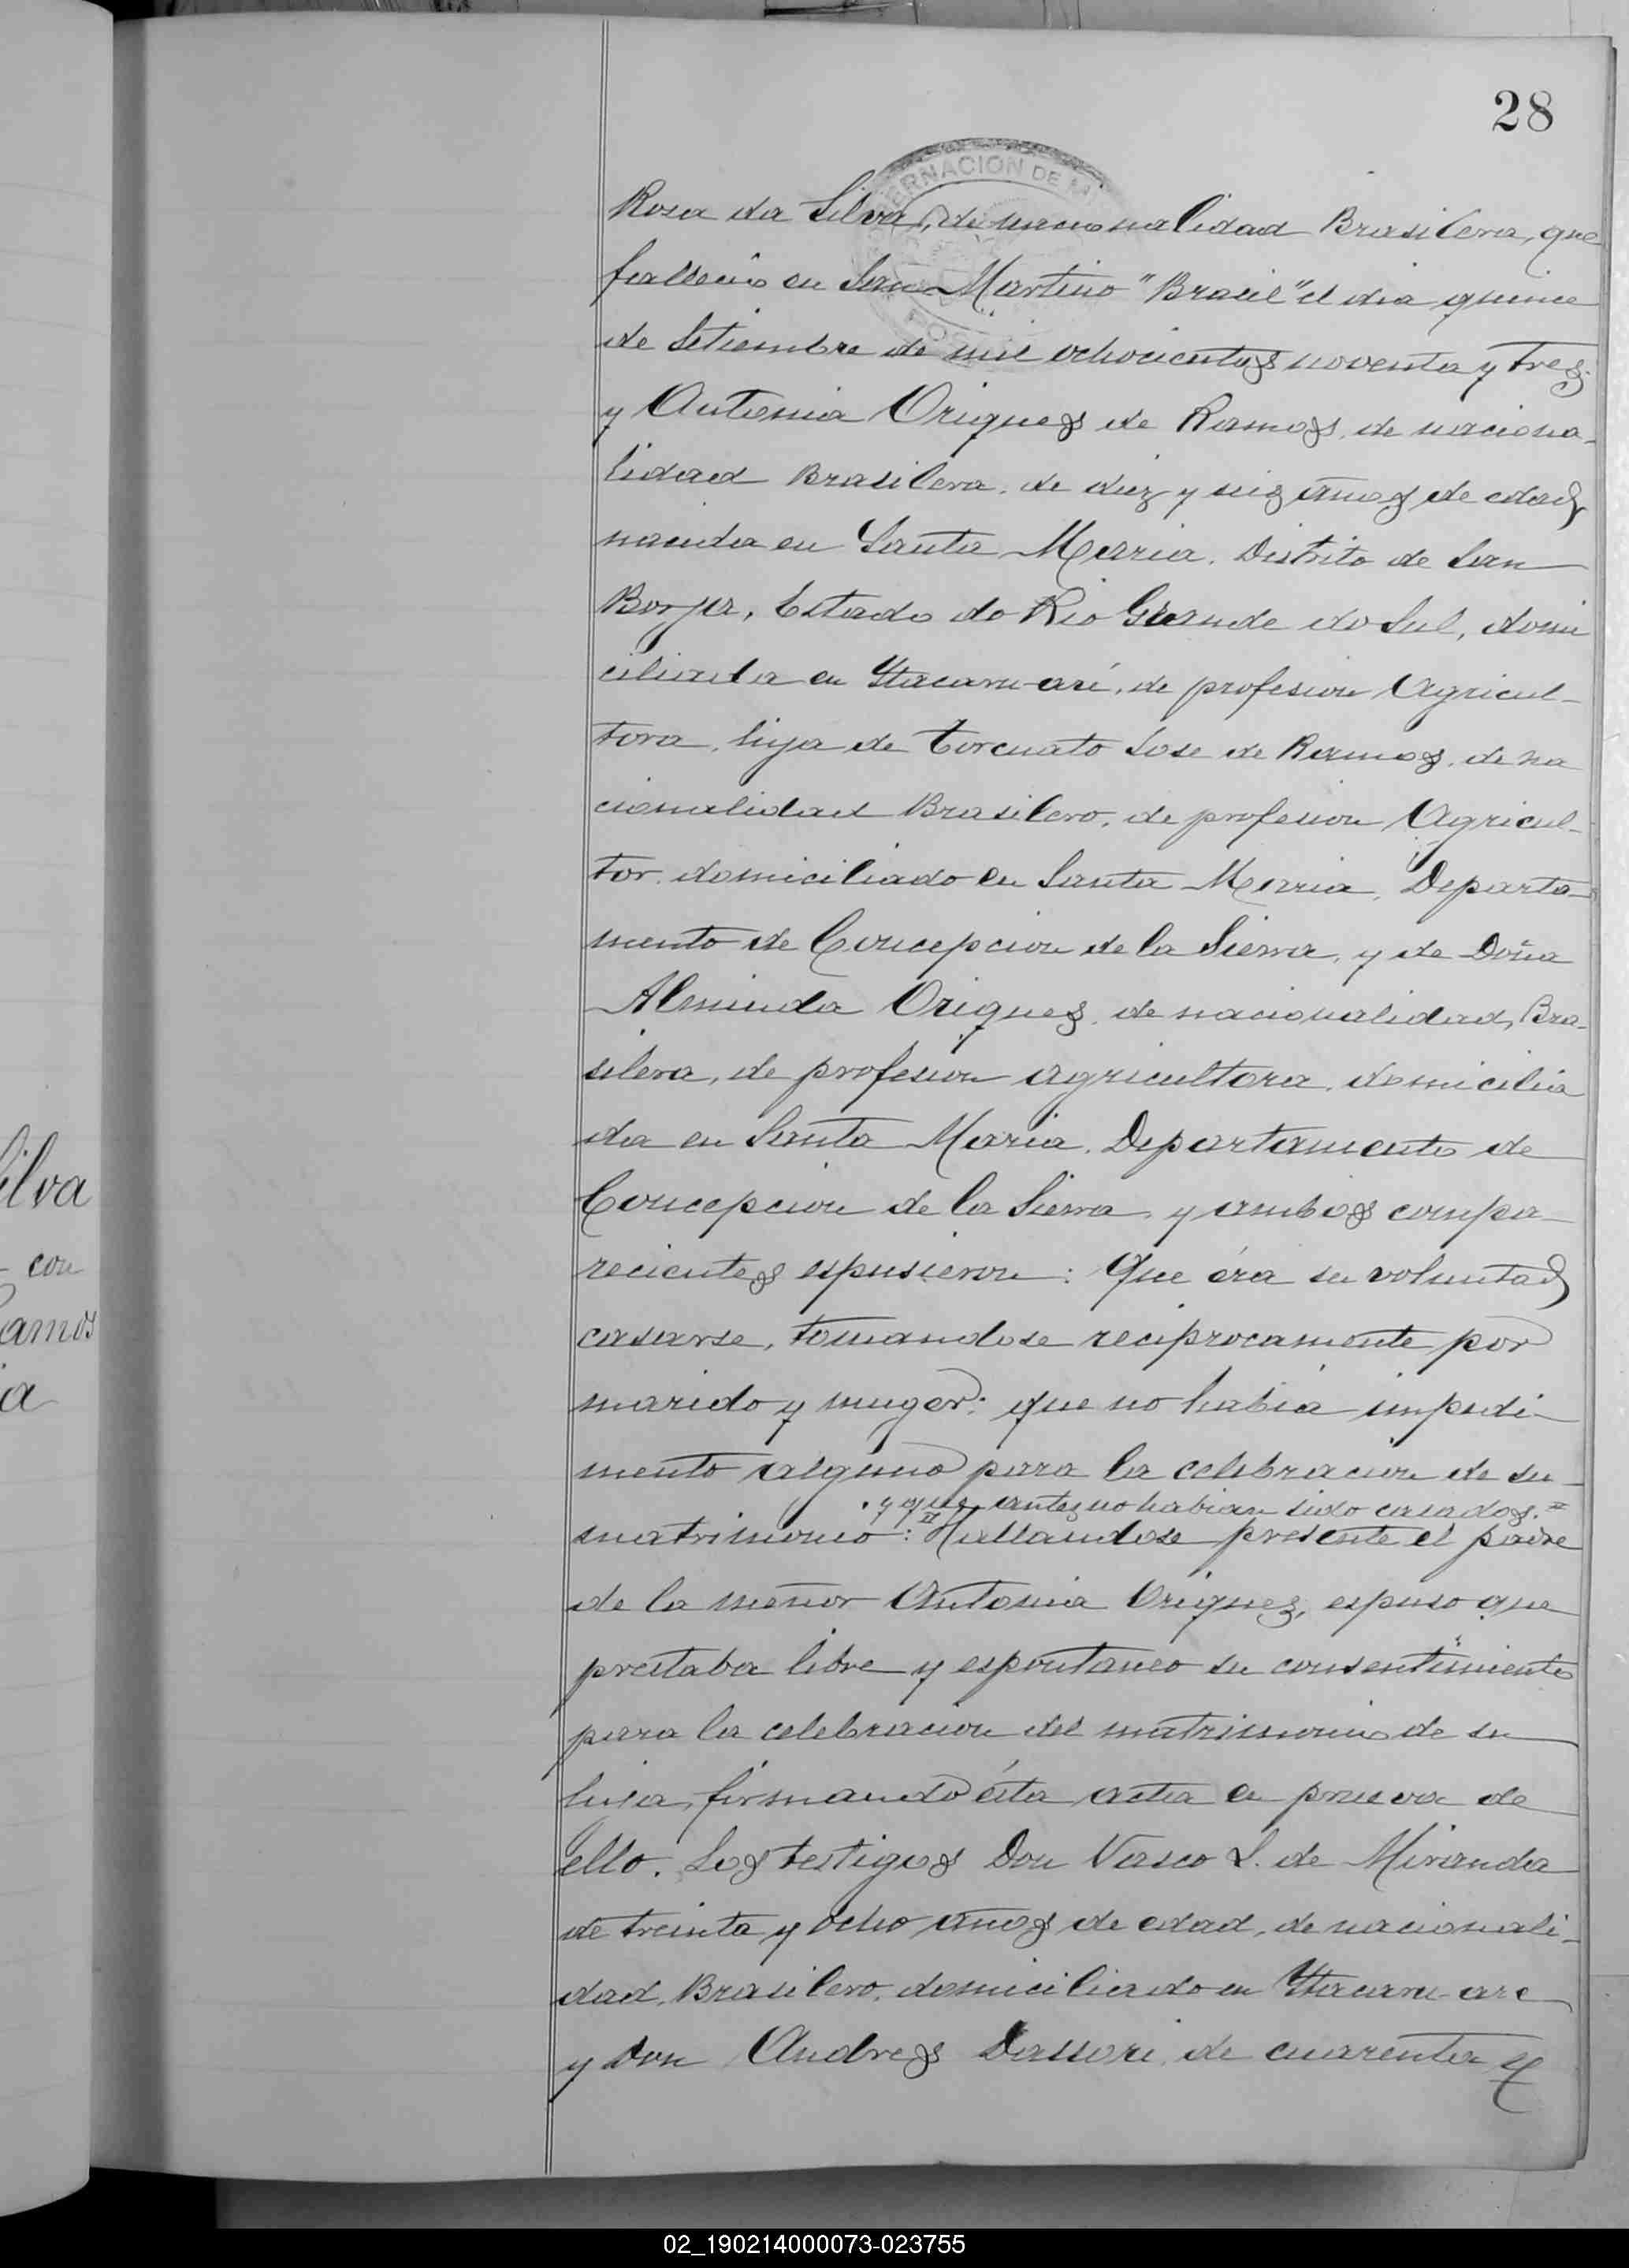 28
GOBERNACION DE MI
Rosa da Silva, de nacionalidad Brasilera, que
falleció en San Martino "Brasil" el dia quince
de Setiembre de mil ochocientos noventa y tres
y Antonia Origues de Ramos, de naciona-
lidad Brasilera, de diez y seis años de edad
nacida en Santa Maria, Distrito de San
Borja, Estado do Rio Grande do Sul, domi
ciliada en Ytacaru-aré, de profesion Agricul-
tora, hija de Torcuato Jose de Ramos, de na
cionalidad Brasilero, de profesion Agricul-
tor, domiciliado en Santa Maria, Departa-
mento de Concepcion de la Sierra, y de Doña
Alminda Origues, de nacionalidad, Bra-
silera, de profesion agricultora, domicilia
da en Santa Maria, Departamento de
Concepcion de la Sierra, y ambos compa-
recientes espusieron: Que éra su voluntad
casarse, tomandose reciprocamente por
marido y muger: que no habia impedi-
mento alguno para la celebracion de su
y que antes no habian sido casados. =
matrimonio: Hallandose presente el padre
de la menor Antonia Origues, espuso que
prestaba libre y espontaneo su consentimiento
para la celebracion del matrimonio de su
hija, firmando ésta acta en prueva de
ello. Los testigos Don Vasco S. de Miranda
de treinta y ocho años de edad, de nacionali-
dad, Brasilero, domiciliado en Ytacaru-are
y Don Andres Dassori, de cuarenta y
Silva
con
Ramos
ia
02_190214000073-023755